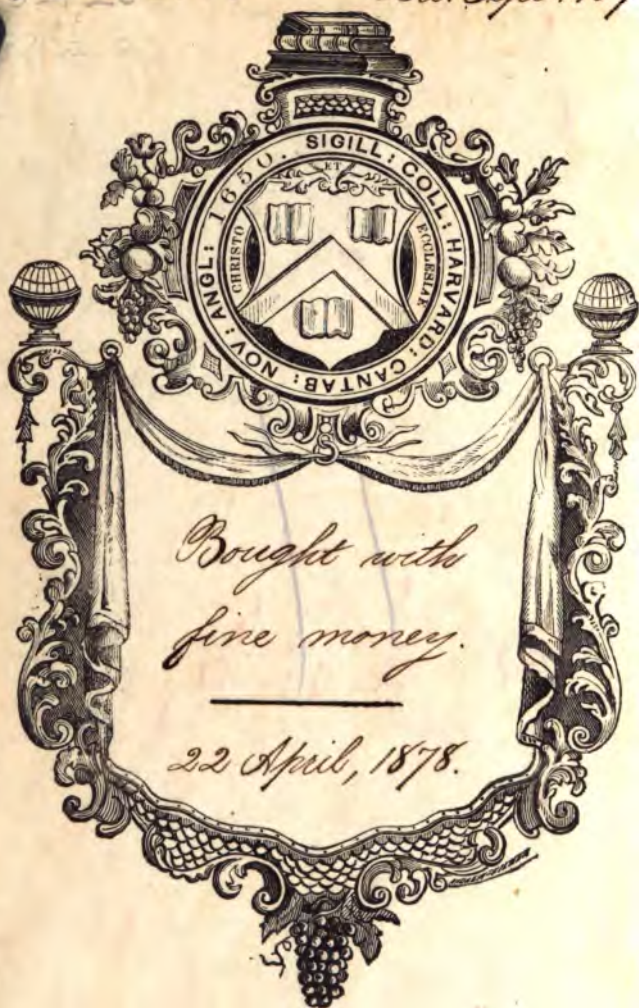 SIGILL: COLL: HARVARD: CANTAB: NOV: ANGL: 1650.
ET
CHRISTO
ECCLESIAE
Bought with
fine money.
22 April, 1878.